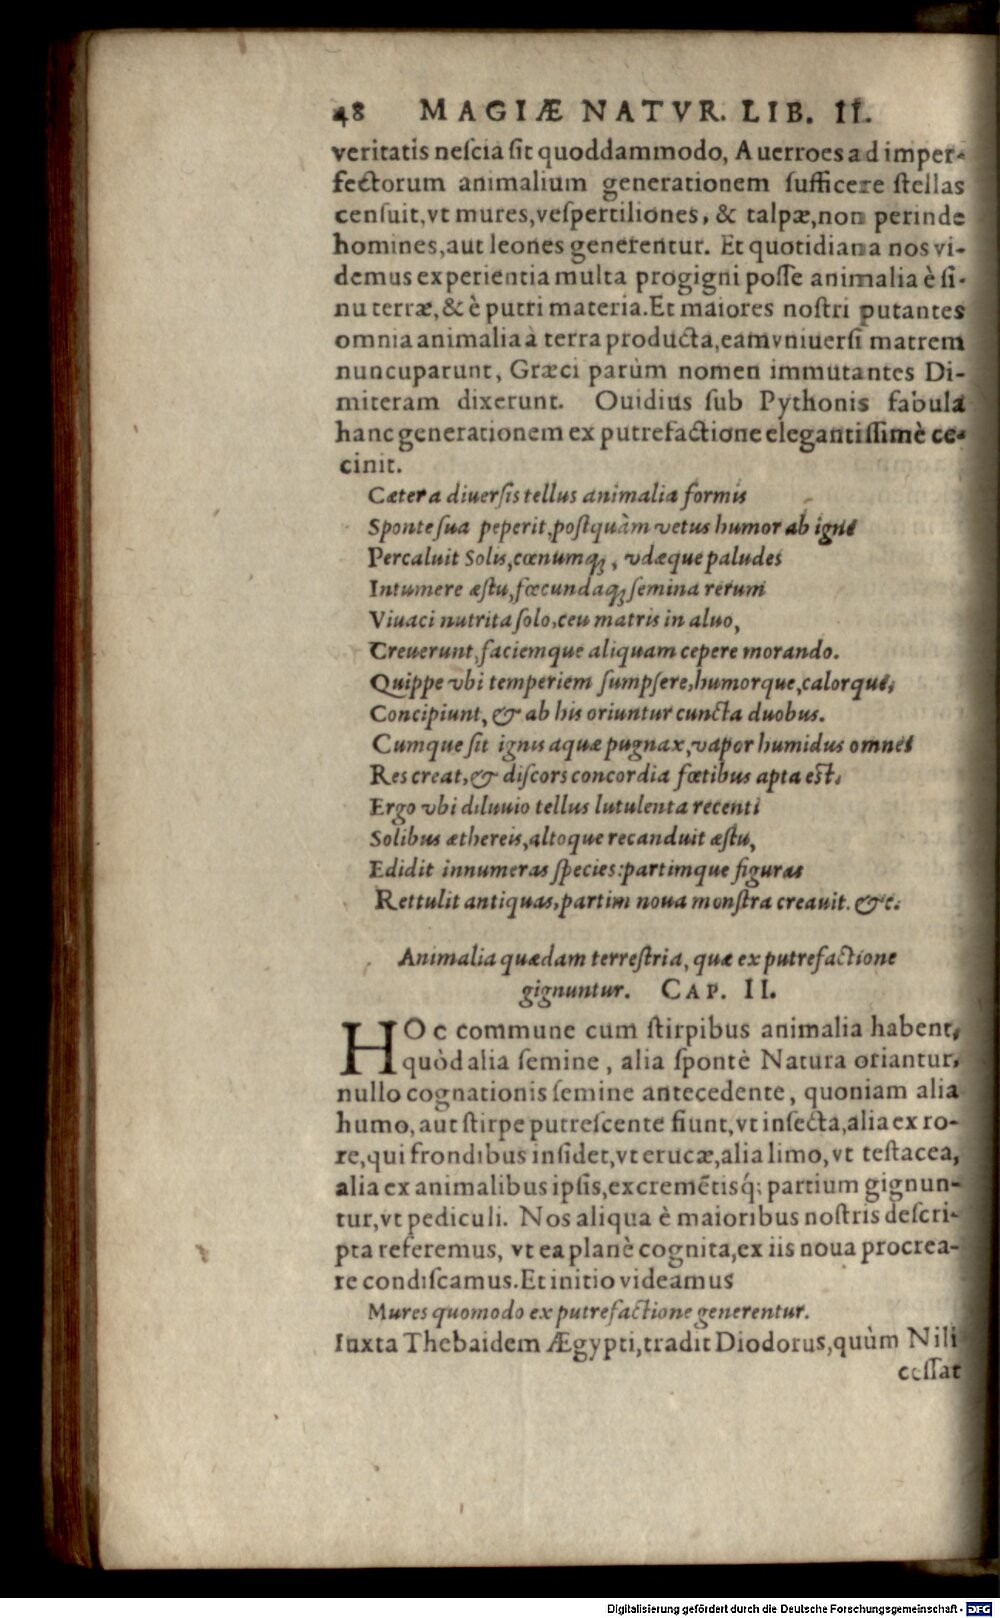 48 MAGIÆ NATVR. LIB. II.
veritatis neſcia ſit quoddammodo, Auerroes ad imper-
fectorum animalium generationem ſufficere ſtellas
cenſuit, vt mures, veſpertiliones, & talpæ, non perinde
homines, aut leones generentur. Et quotidiana nos vi-
demus experientia multa progigni poſſe animalia è ſi-
nu terræ, & è putri materia. Et maiores noſtri putantes
omnia animalia à terra producta, eam vniuerſi matrem
nuncuparunt, Græci parùm nomen immutantes Di-
miteram dixerunt. Ouidius ſub Pythonis fabula
hanc generationem ex putrefactione elegantiſſimè ce-
cinit.
Cætera diuerſis tellus animalia formis
Sponte ſua peperit, poſtquàm vetus humor ab igne
Percaluit Solis, cœnumq́;, vdæque paludes
Intumere æſtu, fœcundaq́; ſemina rerum
Viuaci nutrita ſolo, ceu matris in aluo,
Creuerunt, faciemque aliquam cepere morando.
Quippe vbi temperiem ſumpſere, humorque, calorque,
Concipiunt, & ab his oriuntur cuncta duobus.
Cumque ſit ignis aquæ pugnax, vapor humidus omnes
Res creat, & diſcors concordia fœtibus apta eſt.
Ergo vbi diluuio tellus lutulenta recenti
Solibus æthereis, altoque recanduit æſtu,
Edidit innumeras ſpecies: partimque figuras
Rettulit antiquas, partim noua monſtra creauit. &c.
Animalia quædam terreſtria, quæ ex putrefactione
gignuntur. CAP. II.
HOc commune cum ſtirpibus animalia habent,
quòd alia ſemine, alia ſpontè Natura oriantur,
nullo cognationis ſemine antecedente, quoniam alia
humo, aut ſtirpe putreſcente fiunt, vt inſecta, alia ex ro-
re, qui frondibus inſidet, vt erucæ, alia limo, vt teſtacea,
alia ex animalibus ipſis, excremẽtisq́; partium gignun-
tur, vt pediculi. Nos aliqua è maioribus noſtris deſcri-
pta referemus, vt ea planè cognita, ex iis noua procrea-
re condiſcamus. Et initio videamus
Mures quomodo ex putrefactione generentur.
Iuxta Thebaidem Ægypti, tradit Diodorus, quùm Nili
ceſſat
Digitalisierung gefördert durch die Deutsche Forschungsgemeinschaft - DFG